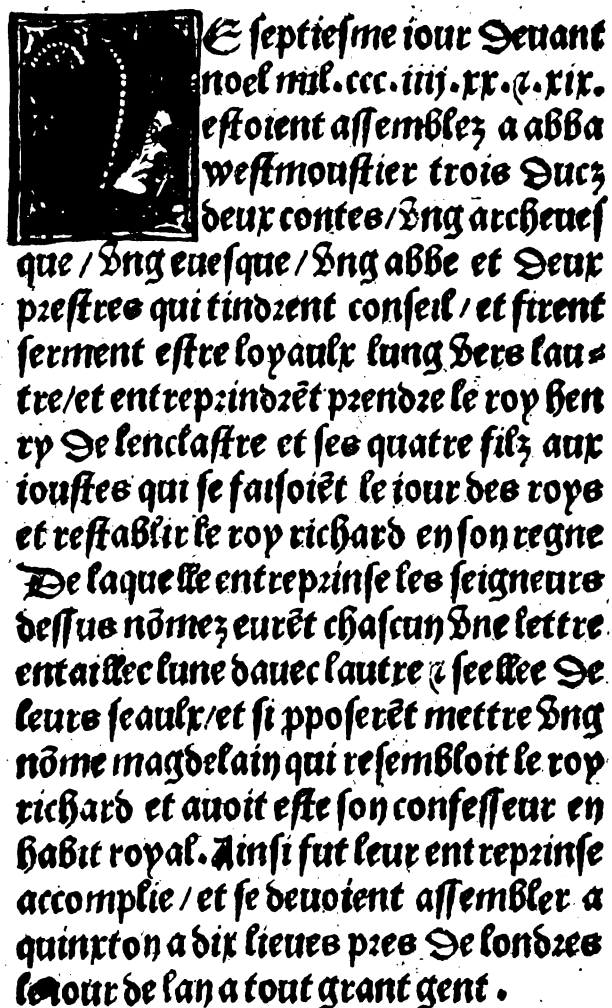 LE septiesme iour deuant
noel mil.ccc.iiij.xx.⁊.xix.
estoient assemblez a abba
westmoustier trois ducz
deux contes/vng archeues
que / vng euesque / vng abbe et deux
prestres qui tindrent conseil / et firent
serment estre loyaulx lung vers lau⸗
tre/et entreprindrēt prendre le roy hen
ry de lenclastre et ses quatre filz aux
ioustes qui se faisoiēt le iour des roys
et restablir le roy richard en son regne
De laquelle entreprinse les seigneurs
dessus nōmez eurēt chascun vne lettre
entaillee lune dauec lautre ⁊ seellee de
leurs seaulx/et si pposerēt mettre vng
nōme magdelain qui resembloit le roy
richard et auoit este son confesseur en
habit royal. Ainsi fut leur entreprinse
accomplie / et se deuoient assembler a
quinxton a dix lieues pres de londres
le iour de lan a tout grant gent .